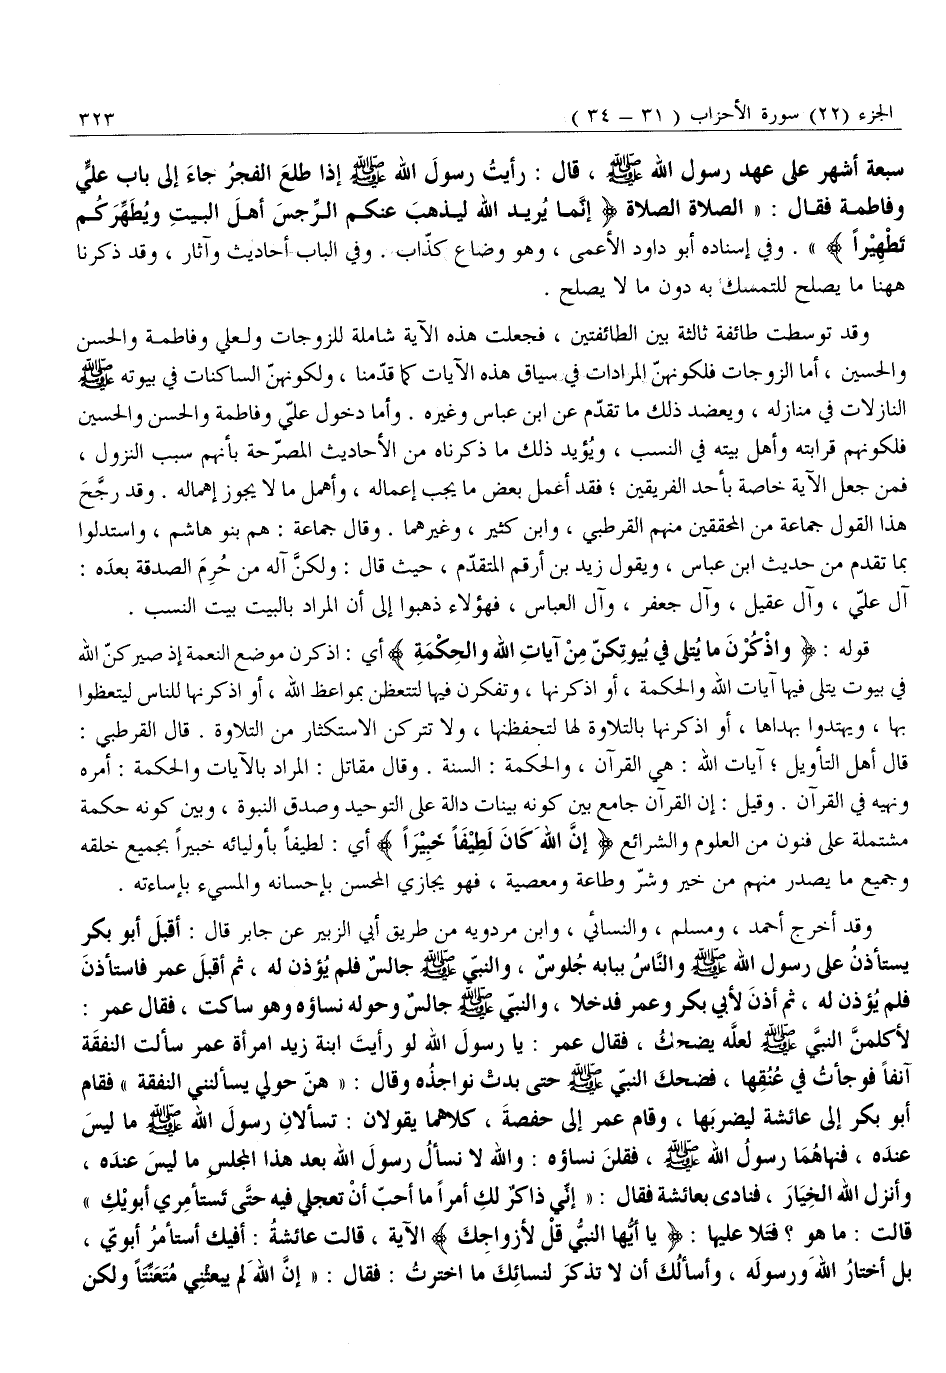 الجزء (٢٢) سورة الأحزاب ( ٣١ – ٣٤ ) ٣٢٣
سبعة أشهر على عهد رسول الله ﷺ ، قال : رأيتُ رسولَ الله ﷺ إذا طلعَ الفجرُ جاءَ إلى باب عليٍّ
وفاطمـة فقـال : « الصلاة الصلاة ﴿ إنَّمـا يُريـد الله ليـذهبَ عنكـم الـرِّجسَ أهـلَ البيـتِ ويُطهِّرَكُـم
تَطْهِيْراً ﴾ » . وفي إسناده أبو داود الأعمى ، وهو وضاع كذّاب . وفي الباب أحاديث وآثار ، وقد ذكرنا
ههنا ما يصلح للتمسك به دون ما لا يصلح .
وقد توسطت طائفة ثالثة بين الطائفتين ، فجعلت هذه الآية شاملة للزوجات ولـعلي وفاطمـة والحسن
والحسين ، أما الزوجات فلكونهنّ المرادات في سياق هذه الآيات كما قدّمنا ، ولكونهنّ الساكنات في بيوته ﷺ
النازلات في منازله ، ويعضد ذلك ما تقدّم عن ابن عباس وغيره . وأما دخول عليّ وفاطمة والحسن والحسين
فلكونهم قرابته وأهل بيته في النسب ، ويُؤيد ذلك ما ذكرناه من الأحاديث المصرّحة بأنهم سبب النزول ،
فمن جعل الآية خاصة بأحد الفريقين ؛ فقد أعمل بعض ما يجب إعماله ، وأهمل ما لا يجوز إهماله . وقد رجَّحَ
هذا القول جماعة من المحققين منهم القرطبي ، وابن كثير ، وغيرهما . وقال جماعة : هم بنو هاشم ، واستدلوا
بما تقدم من حديث ابن عباس ، وبقول زيد بن أرقم المتقدّم ، حيث قال : ولكنَّ آله من حُرِمَ الصدقة بعدَه :
آل عليّ ، وآل عقيل ، وآل جعفر ، وآل العباس ، فهؤلاء ذهبوا إلى أن المراد بالبيت بيت النسب .
قوله : ﴿ واذْكُرْنَ ما يُتلى في بُيوتِكنّ مِنْ آياتِ الله والحِكْمَةِ ﴾ أي : اذكرن موضع النعمة إذ صيركنّ الله
في بيوت يتلى فيها آيات الله والحكمة ، أو اذكرنها ، وتفكرن فيها لتتعظن بمواعظ الله ، أو اذكرنها للناس ليتعظوا
بها ، ويهتدوا بهداها ، أو اذكرنها بالتلاوة لها لتحفظنها ، ولا تتركن الاستكثار من التلاوة . قال القرطبي :
قال أهل التأويل ؛ آيات الله : هي القرآن ، والحكمة : السنة . وقال مقاتل : المراد بالآيات والحكمة : أمره
ونهيه في القرآن . وقيل : إن القرآن جامع بين كونه بينات دالة على التوحيد وصدق النبوة ، وبين كونه حكمة
مشتملة على فنون من العلوم والشرائع ﴿ إنَّ الله كَانَ لَطِيْفَاً خَبِيْرَاً ﴾ أي : لطيفاً بأوليائه خبيراً بجميع خلقه
وجميع ما يصدر منهم من خير وشرّ وطاعة ومعصية ، فهو يجازي المحسن بإحسانه والمسيء بإساءته .
وقد أخرج أحمد ، ومسلم ، والنسائي ، وابن مردويه من طريق أبي الزبير عن جابر قال : أقبلَ أبو بكر
يستأذنُ على رسول الله ﷺ والنَّاسُ ببابه جُلوسٌ ، والنبيّ ﷺ جالسٌ فلم يُؤذن له ، ثم أقبلَ عمر فاستأذنَ
فلم يُؤذن له ، ثم أذنَ لأبي بكر وعمر فدخلا ، والنبيّ ﷺ جالسٌ وحوله نساؤه وهو ساكت ، فقال عمر :
لأكلمنَّ النبيَّ ﷺ لعلَّه يضحكُ ، فقال عمر : يا رسولَ الله لو رأيتَ ابنة زيد امرأة عمر سألت النفقَة
آنفاً فوجأتُ في عُنُقِها ، فضحكَ النبيّ ﷺ حتى بدتْ نواجذُه وقال : « هنّ حولي يسألنني النفقة » فقام
أبو بكر إلى عائشة ليضربَها ، وقام عمر إلى حفصةَ ، كلاهما يقولان : تسألانِ رسولَ الله ﷺ ما ليسَ
عندَه ، فنهاهُمَا رسولُ الله ﷺ ، فقلنَ نساؤه : والله لا نسألُ رسولَ الله بعد هذا المجلس ما ليسَ عندَه ،
وأنزل الله الخِيَارَ ، فنادى بعائشة فقال : « إنّي ذاكرٌ لكِ أمراً ما أحبّ أنْ تعجلي فيه حتَّى تَستأمِري أبويْكِ »
قالت : ما هو ؟ فتَلا عليها : ﴿ يا أيُّها النبيُّ قُلْ لأزواجِكَ ﴾ الآية ، قالت عائشةُ : أفيك أستأمرُ أبويّ ،
بل أختارُ اللهَ ورسولَه ، وأسألُكَ أن لا تذكرَ لنسائِكَ ما اخترتُ : فقال : « إنَّ اللهَ لم يبعثْنِي مُتَعَنِّتَاً ولكن